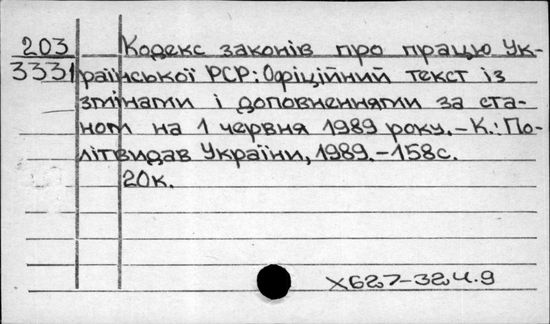 203 Кодекс законів про працю Ук-
3331 раїнської РСР: Офіційний текст із
змінами і доповненнями за ста-
ном на 1 червня 1989 року.-К.: По-
літвидав України, 1989.-158с.
20к.
Х627-324.9